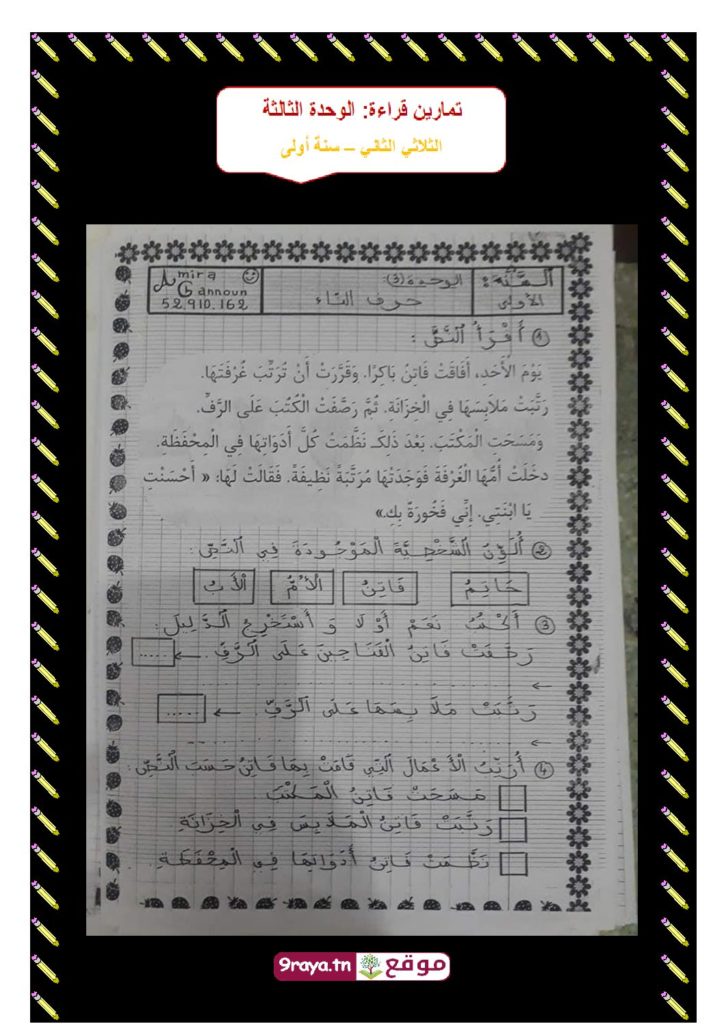 تمارين قراءة: الوحدة الثالثة
الثلاثي الثاني – سنة أولى
السَّنَةُ: الأولى
الوحدة (3)
حرف التاء
Amira Gannoun
52.910.162
① أَقْرَأُ النَّصَّ :
يَوْمَ الأَحَدِ، أَفَاقَتْ فَاتِنُ بَاكِرًا. وَقَرَّرَتْ أَنْ تُرَتِّبَ غُرْفَتَهَا.
رَتَّبَتْ مَلَابِسَهَا فِي الْخِزَانَةِ. ثُمَّ رَصَّفَتْ الْكُتُبَ عَلَى الرَّفِّ.
وَمَسَحَتِ الْمَكْتَبَ. بَعْدَ ذَلِكَ نَظَّمَتْ كُلَّ أَدَوَاتِهَا فِي الْمِحْفَظَةِ.
دخَلَتْ أُمُّهَا الْغُرْفَةَ فَوَجَدَتْهَا مُرَتَّبَةً نَظِيفَةً. فَقَالَتْ لَهَا: « أَحْسَنْتِ
يَا ابْنَتِي. إِنِّي فَخُورَةٌ بِكِ.»
② أُلَوِّنُ الشَّخْصِيَّةَ الْمَوْجُودَةَ فِي النَّصِّ:
حَاتِمُ فَاتِنُ الْأُمُّ الْأَبُ
③ أَكْتُبُ نَعَمْ أَوْ لَا وَ أَسْتَخْرِجُ الدَّلِيلَ :
رَصَّفَتْ فَاتِنُ الْفَنَاجِينَ عَلَى الرَّفِّ. ← .....
رَتَّبَتْ مَلَابِسَهَا عَلَى الرَّفِّ. ← .....
④ أُرَتِّبُ الْأَعْمَالَ الَّتِي قَامَتْ بِهَا فَاتِنُ حَسَبَ النَّصِّ:
مَسَحَتْ فَاتِنُ الْمَكْتَبَ
رَتَّبَتْ فَاتِنُ الْمَلَابِسَ فِي الْخِزَانَةِ
نَظَّمَتْ فَاتِنُ أَدَوَاتِهَا فِي الْمِحْفَظَةِ.
موقع 9raya.tn